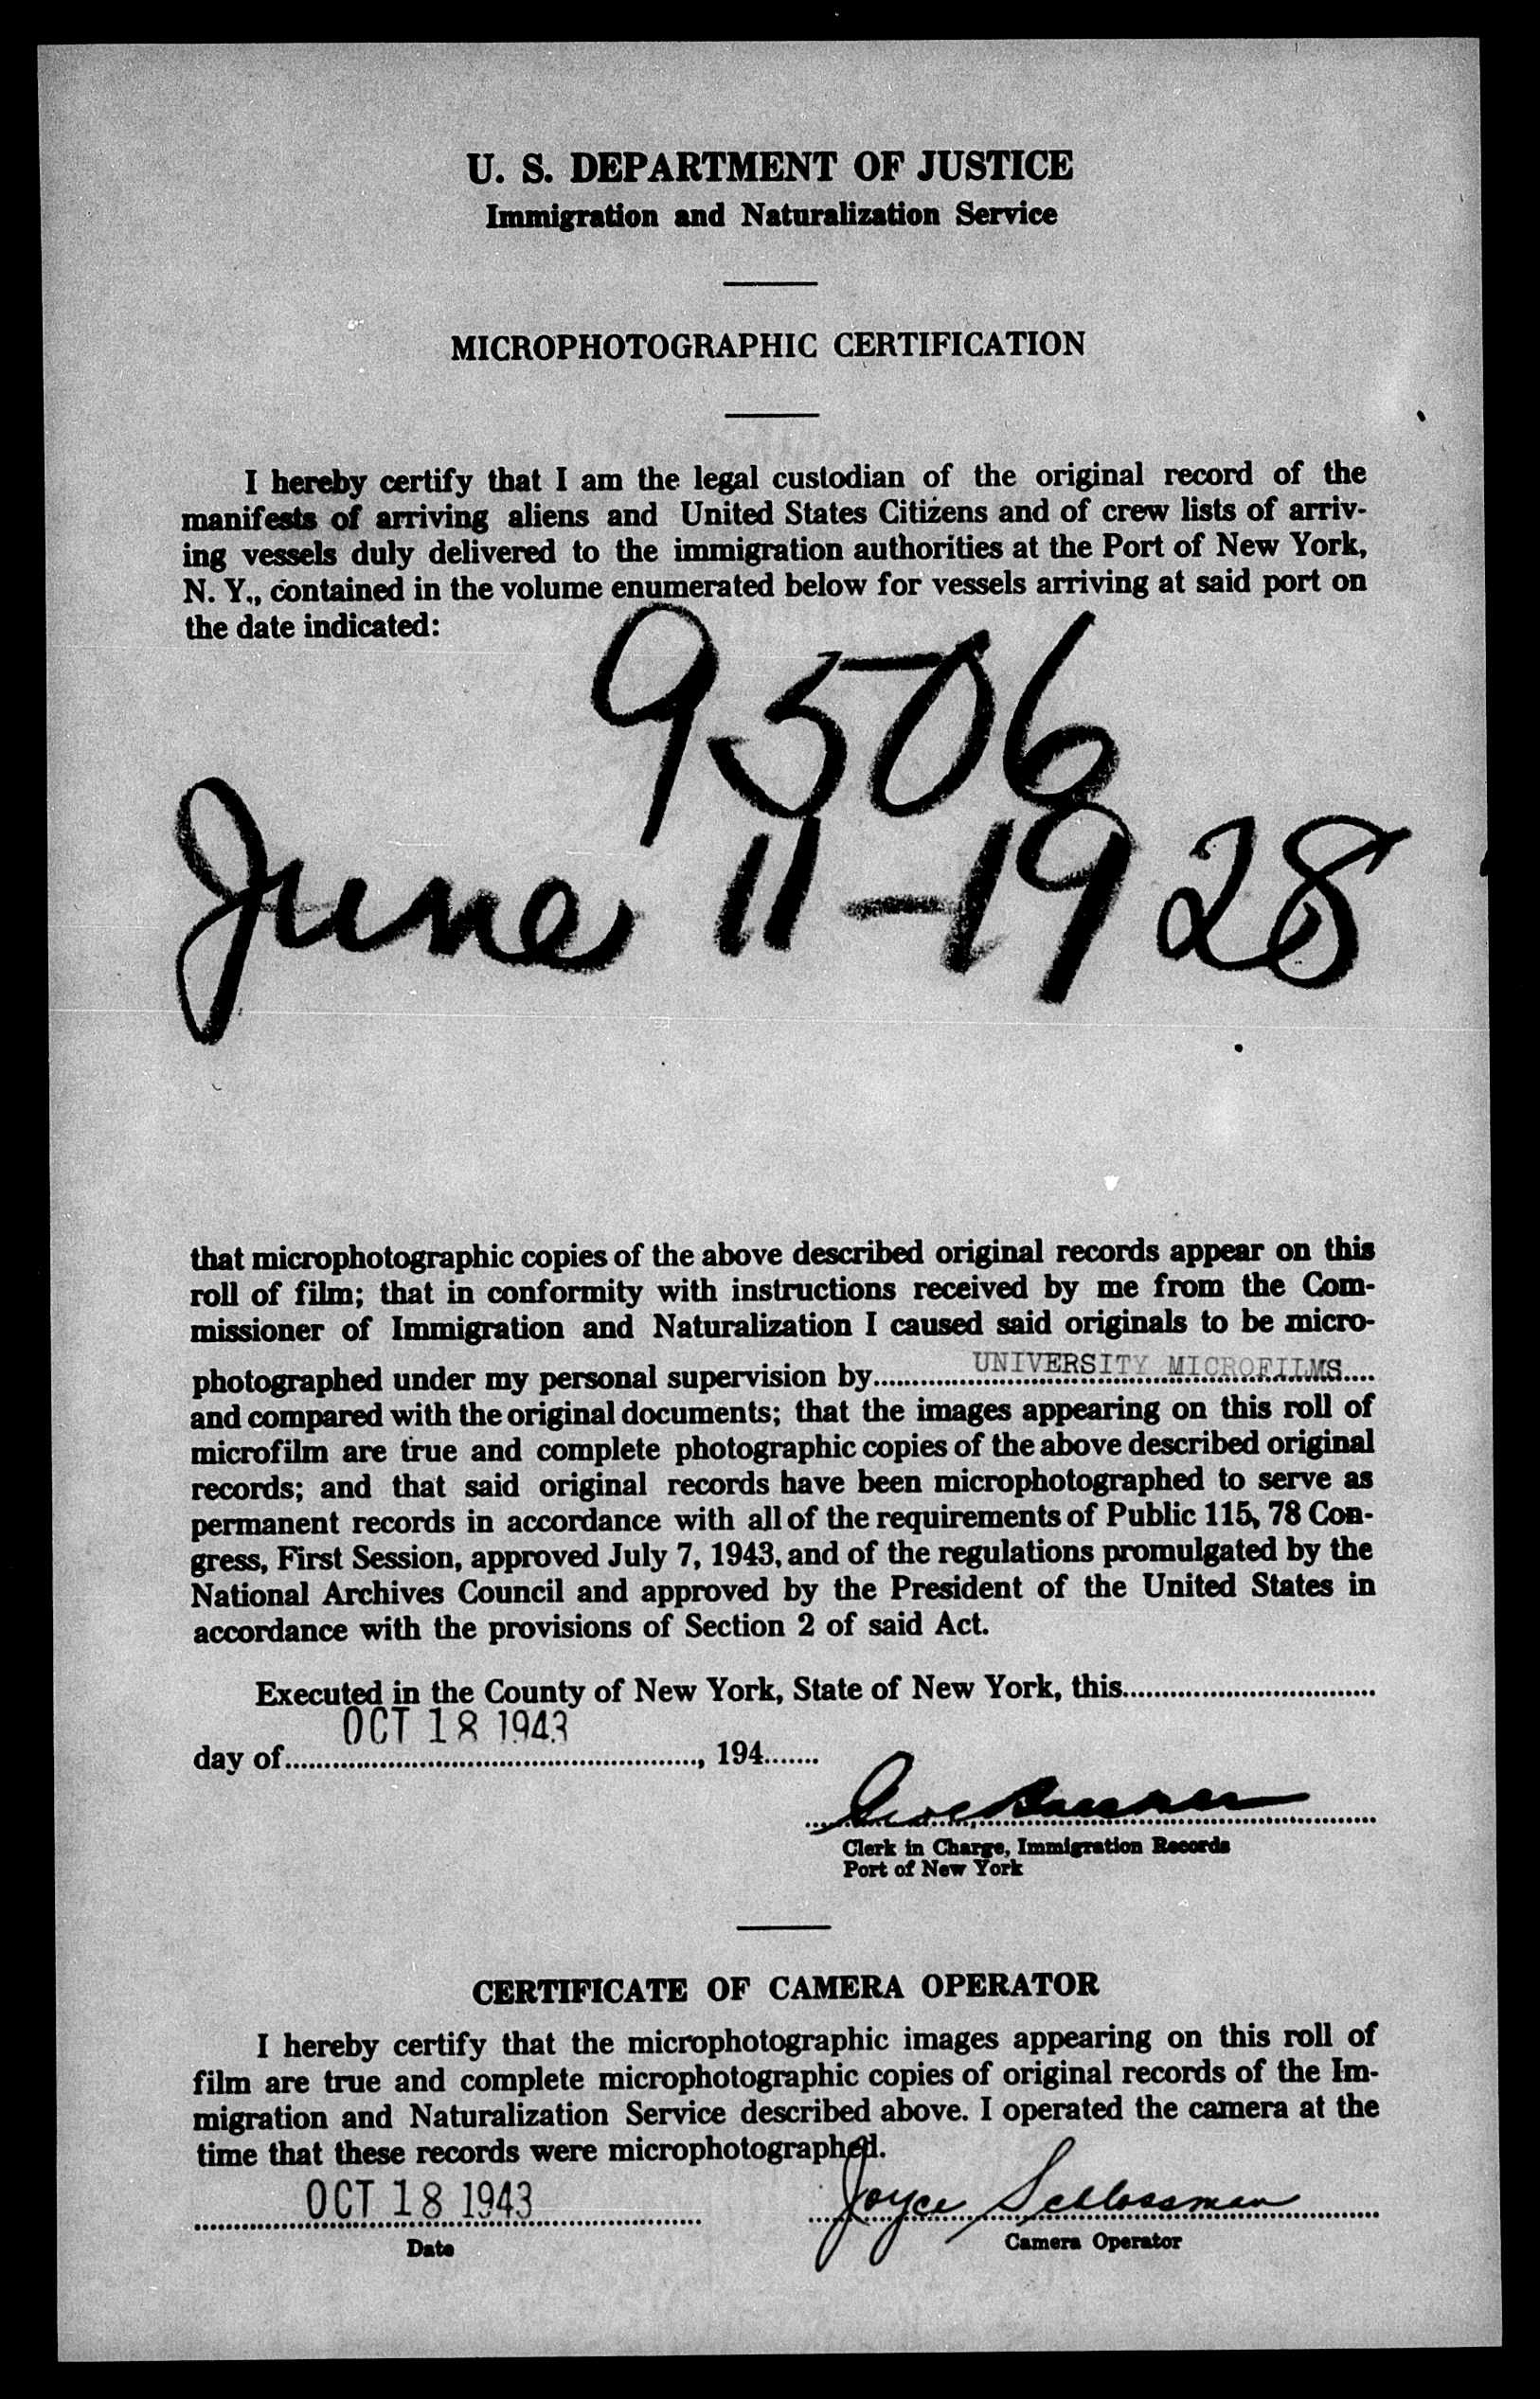 U. S. DEPARTMENT OF JUSTICE
Immigration and Naturalization Service
MICROPHOTOGRAPHIC CERTIFICATION
I hereby certify that I am the legal custodian of the original record of the
manifests of arriving aliens and United States Citizens and of crew lists of arriv-
ing vessels duly delivered to the immigration authorities at the Port of New York,
N. Y., contained in the volume enumerated below for vessels arriving at said port on
the date indicated:
9506
June 11-1928
that microphotographic copies of the above described original records appear on this
roll of film; that in conformity with instructions received by me from the Com-
missioner of Immigration and Naturalization I caused said originals to be micro-
photographed under my personal supervision by UNIVERSITY MICROFILMS
and compared with the original documents; that the images appearing on this roll of
microfilm are true and complete photographic copies of the above described original
records; and that said original records have been microphotographed to serve as
permanent records in accordance with all of the requirements of Public 115, 78 Con-
gress, First Session, approved July 7, 1943, and of the regulations promulgated by the
National Archives Council and approved by the President of the United States in
accordance with the provisions of Section 2 of said Act.
Executed in the County of New York, State of New York, this
OCT 18 1943
day of , 194
Clerk in Charge, Immigration Records
Port of New York
CERTIFICATE OF CAMERA OPERATOR
I hereby certify that the microphotographic images appearing on this roll of
film are true and complete microphotographic copies of original records of the Im-
migration and Naturalization Service described above. I operated the camera at the
time that these records were microphotographed.
OCT 18 1943 Joyce Schlossman
Date Camera Operator